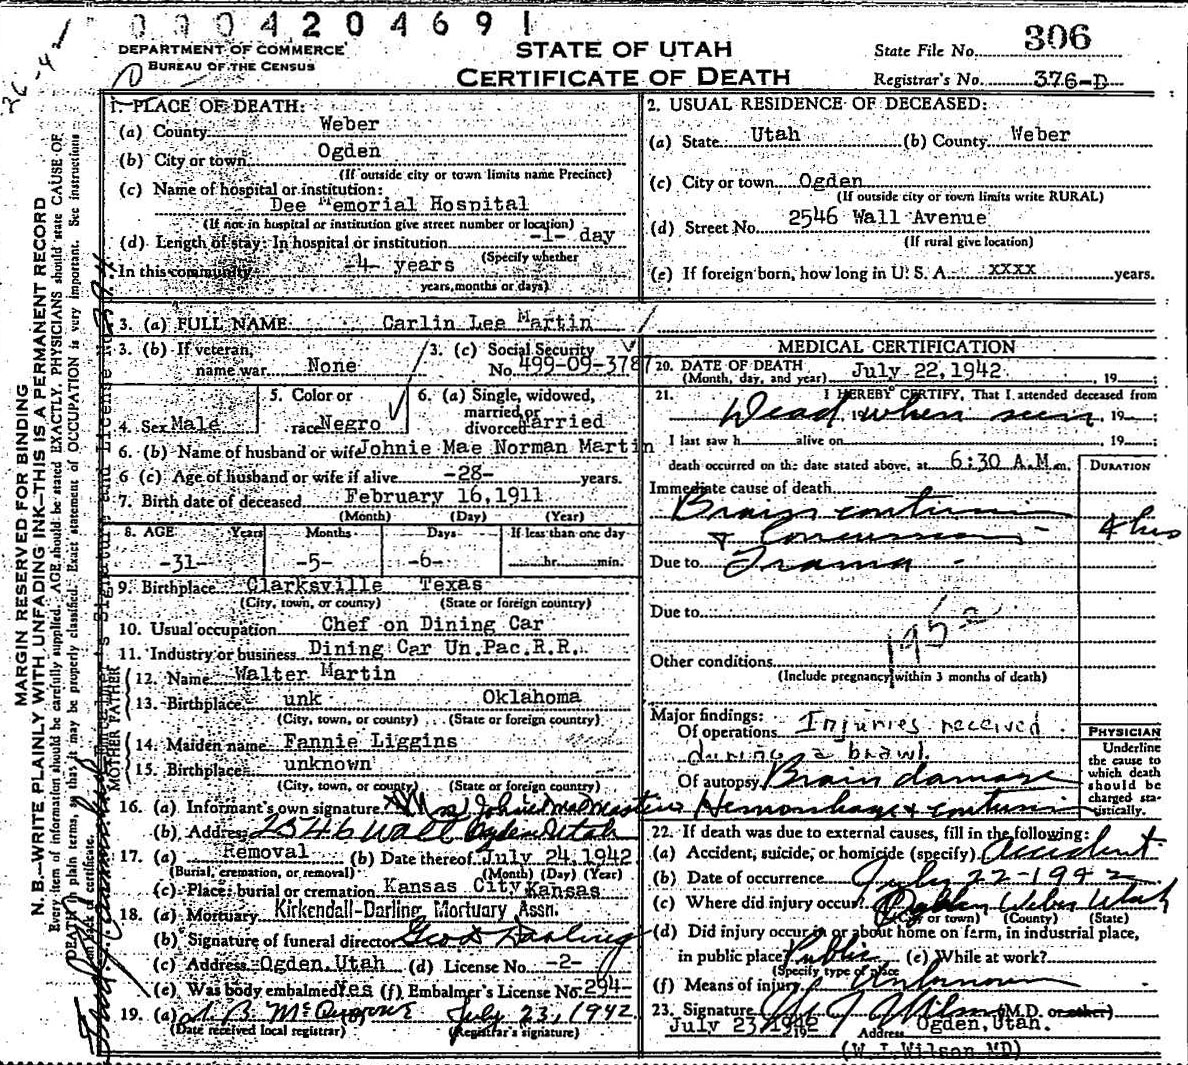 0004204691
DEPARTMENT OF COMMERCE
BUREAU OF THE CENSUS
STATE OF UTAH
CERTIFICATE OF DEATH
State File No. 306
Registrar's No. 376-D
MARGIN RESERVED FOR BINDING
N. B.—WRITE PLAINLY WITH UNFADING INK—THIS IS A PERMANENT RECORD
Every item of information should be carefully supplied. AGE should be stated EXACTLY. PHYSICIANS should state CAUSE OF
DEATH in plain terms, that it may be properly classified. Exact statement of OCCUPATION is very important. See instructions
on back of certificate.
1. PLACE OF DEATH:
(a) County Weber
(b) City or town Ogden
(If outside city or town limits name Precinct)
(c) Name of hospital or institution:
Dee Memorial Hospital
(If not in hospital or institution give street number or location)
(d) Length of stay: In hospital or institution -1- day
(Specify whether
In this community -4- years
years, months or days)
2. USUAL RESIDENCE OF DECEASED:
(a) State Utah (b) County Weber
(c) City or town Ogden
(If outside city or town limits write RURAL)
(d) Street No. 2546 Wall Avenue
(If rural give location)
(e) If foreign born, how long in U. S. A. xxxx years.
3. (a) FULL NAME Carlin Lee Martin
3. (b) If veteran, name war None
3. (c) Social Security No. 499-09-3787
4. Sex Male
5. Color or race Negro
6. (a) Single, widowed, married, or divorced Married
6. (b) Name of husband or wife Johnie Mae Norman Martin
6 (c) Age of husband or wife if alive -28- years.
7. Birth date of deceased February 16, 1911
(Month) (Day) (Year)
8. AGE Years Months Days If less than one day
-31- -5- -6- hr. min.
9. Birthplace Clarksville Texas
(City, town, or county) (State or foreign country)
10. Usual occupation Chef on Dining Car
11. Industry or business Dining Car Un.Pac.R.R.
FATHER
12. Name Walter Martin
13. Birthplace unk Oklahoma
(City, town, or county) (State or foreign country)
MOTHER
14. Maiden name Fannie Liggins
15. Birthplace unknown
(City, town, or county) (State or foreign country)
16. (a) Informant's own signature x Mrs Johnie Mae Martin
(b) Address 2546 Wall Ogden Utah
17. (a) Removal (b) Date thereof July 24, 1942
(Burial, cremation, or removal) (Month) (Day) (Year)
(c) Place: burial or cremation Kansas City, Kansas
18. (a) Mortuary Kirkendall-Darling Mortuary Assn.
(b) Signature of funeral director Geo Darling
(c) Address Ogden, Utah (d) License No. -2-
(e) Was body embalmed Yes (f) Embalmer's License No. 294-
19. (a) July 23, 1942.
(Date received local registrar) (Registrar's signature)
MEDICAL CERTIFICATION
20. DATE OF DEATH
(Month, day, and year) July 22, 1942 , 19 ;
21. I HEREBY CERTIFY, That I attended deceased from
Dead when seen , 19 ;
I last saw h alive on , 19 ;
death occurred on the date stated above, at 6:30 A.M. m.
DURATION
Immediate cause of death
Brain contusion
& Concussion - 4 hrs
Due to Trama -
Due to
195
Other conditions
(Include pregnancy within 3 months of death)
Major findings:
Of operations Injuries received
during a brawl
Of autopsy Brain damage
Hemorrhage & contusion
PHYSICIAN
Underline
the cause to
which death
should be
charged sta-
tistically.
22. If death was due to external causes, fill in the following:
(a) Accident, suicide, or homicide (specify) Accident
(b) Date of occurrence July 22-1942
(c) Where did injury occur? Ogden Weber Utah
(City or town) (County) (State)
(d) Did injury occur in or about home on farm, in industrial place,
in public place? Public (e) While at work?
(Specify type of place
(f) Means of injury Unknown
23. Signature W J Wilson (M.D. or other)
July 23, 1942 19 Address Ogden, Utah.
(W.J.Wilson MD)